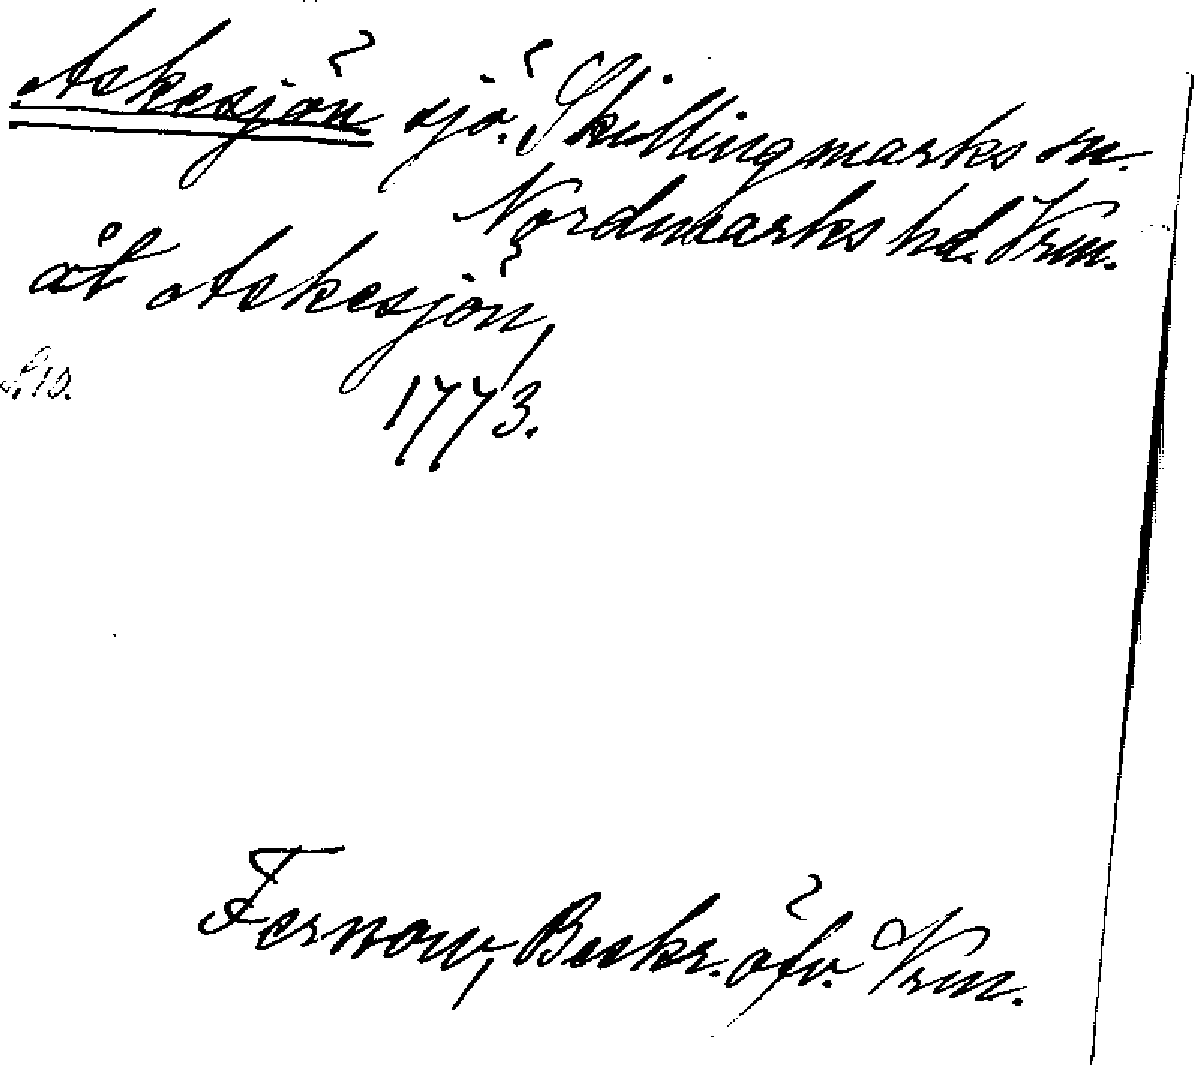 Askesjön sjö. Skillingmarks sn.
Nordmarks hd. Vrm.
åt Askesjön,
1773.
S. 10.
Fernow, Beskr. öfv. Vrm.